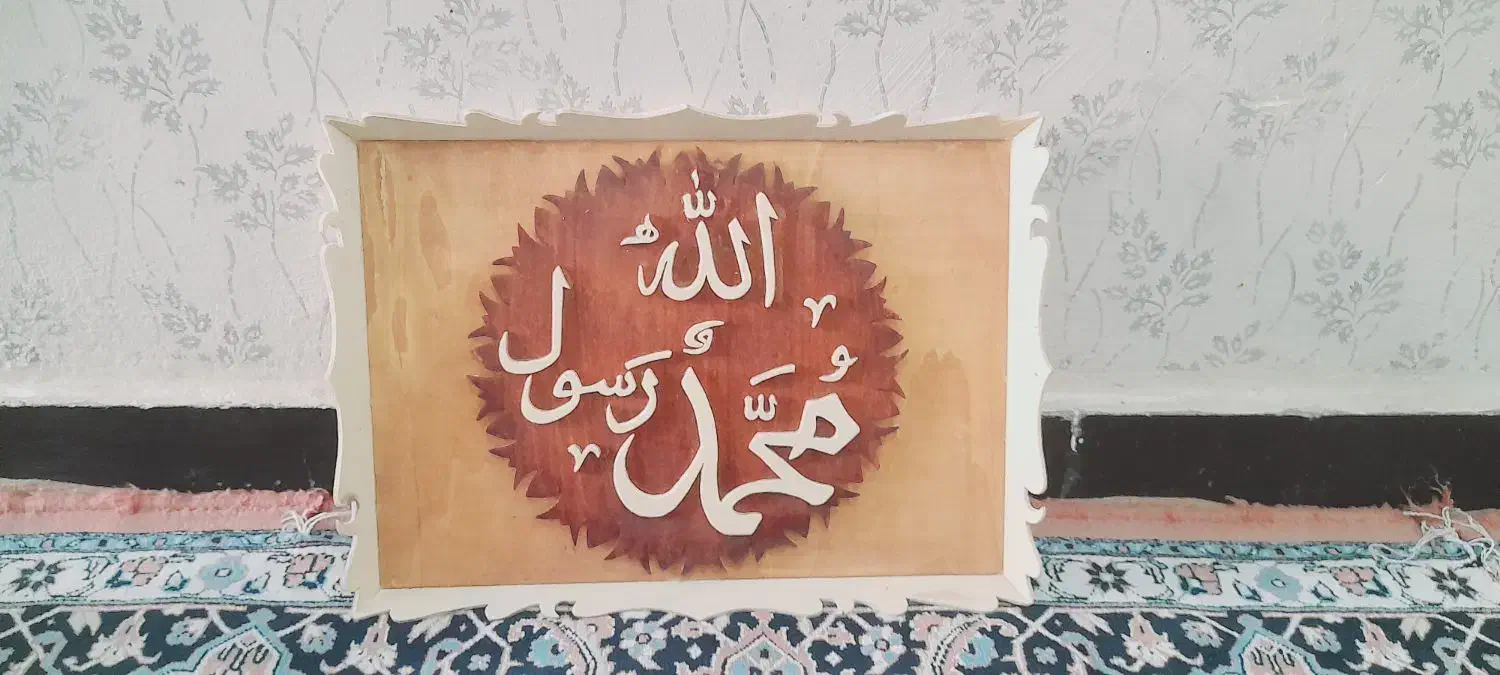 محمد رسول
الله